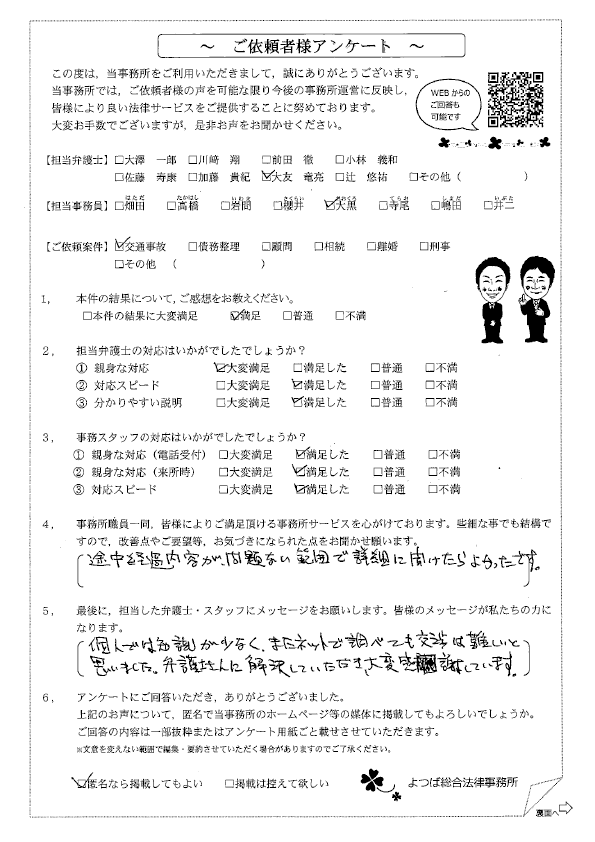 ～ ご依頼者様アンケート ～
この度は、当事務所をご利用いただきまして、誠にありがとうございます。
当事務所では、ご依頼者様の声を可能な限り今後の事務所運営に反映し、
皆様により良い法律サービスをご提供することに努めております。
大変お手数でございますが、是非お声をお聞かせください。
WEBからの
ご回答も
可能です
【担当弁護士】□大澤 一郎 □川﨑 翔 □前田 徹 □小林 義和
□佐藤 寿康 □加藤 貴紀 ☑大友 竜亮 □辻 悠祐 □その他（ ）
【担当事務員】□畑田 □高橋 □岩間 □櫻井 ☑大黒 □寺尾 □嶋田 □井二
【ご依頼案件】☑交通事故 □債務整理 □顧問 □相続 □離婚 □刑事
□その他 （ ）
1、 本件の結果について、ご感想をお教えください。
□本件の結果に大変満足 ☑満足 □普通 □不満
2、 担当弁護士の対応はいかがでしたでしょうか？
① 親身な対応 ☑大変満足 □満足した □普通 □不満
② 対応スピード □大変満足 ☑満足した □普通 □不満
③ 分かりやすい説明 □大変満足 ☑満足した □普通 □不満
3、 事務スタッフの対応はいかがでしたでしょうか？
① 親身な対応（電話受付） □大変満足 ☑満足した □普通 □不満
② 親身な対応（来所時） □大変満足 ☑満足した □普通 □不満
③ 対応スピード □大変満足 ☑満足した □普通 □不満
4、 事務所職員一同、皆様によりご満足頂ける事務所サービスを心がけております。些細な事でも結構で
すので、改善点やご要望等、お気づきになられた点をお聞かせ願います。
途中経過内容が、問題ない範囲で詳細に聞けたらよかったです。
5、 最後に、担当した弁護士・スタッフにメッセージをお願いします。皆様のメッセージが私たちの力に
なります。
個人では知識が少なく、またネットで調べても交渉は難しいと
思いました。弁護士さんに解決していただき、大変感謝しています。
6、 アンケートにご回答いただき、ありがとうございました。
上記のお声について、匿名で当事務所のホームページ等の媒体に掲載してもよろしいでしょうか。
ご回答の内容は一部抜粋またはアンケート用紙ごと載せさせていただきます。
※文意を変えない範囲で編集・要約させていただく場合がありますのでご了承ください。
☑匿名なら掲載してもよい □掲載は控えて欲しい
よつば総合法律事務所
裏面へ